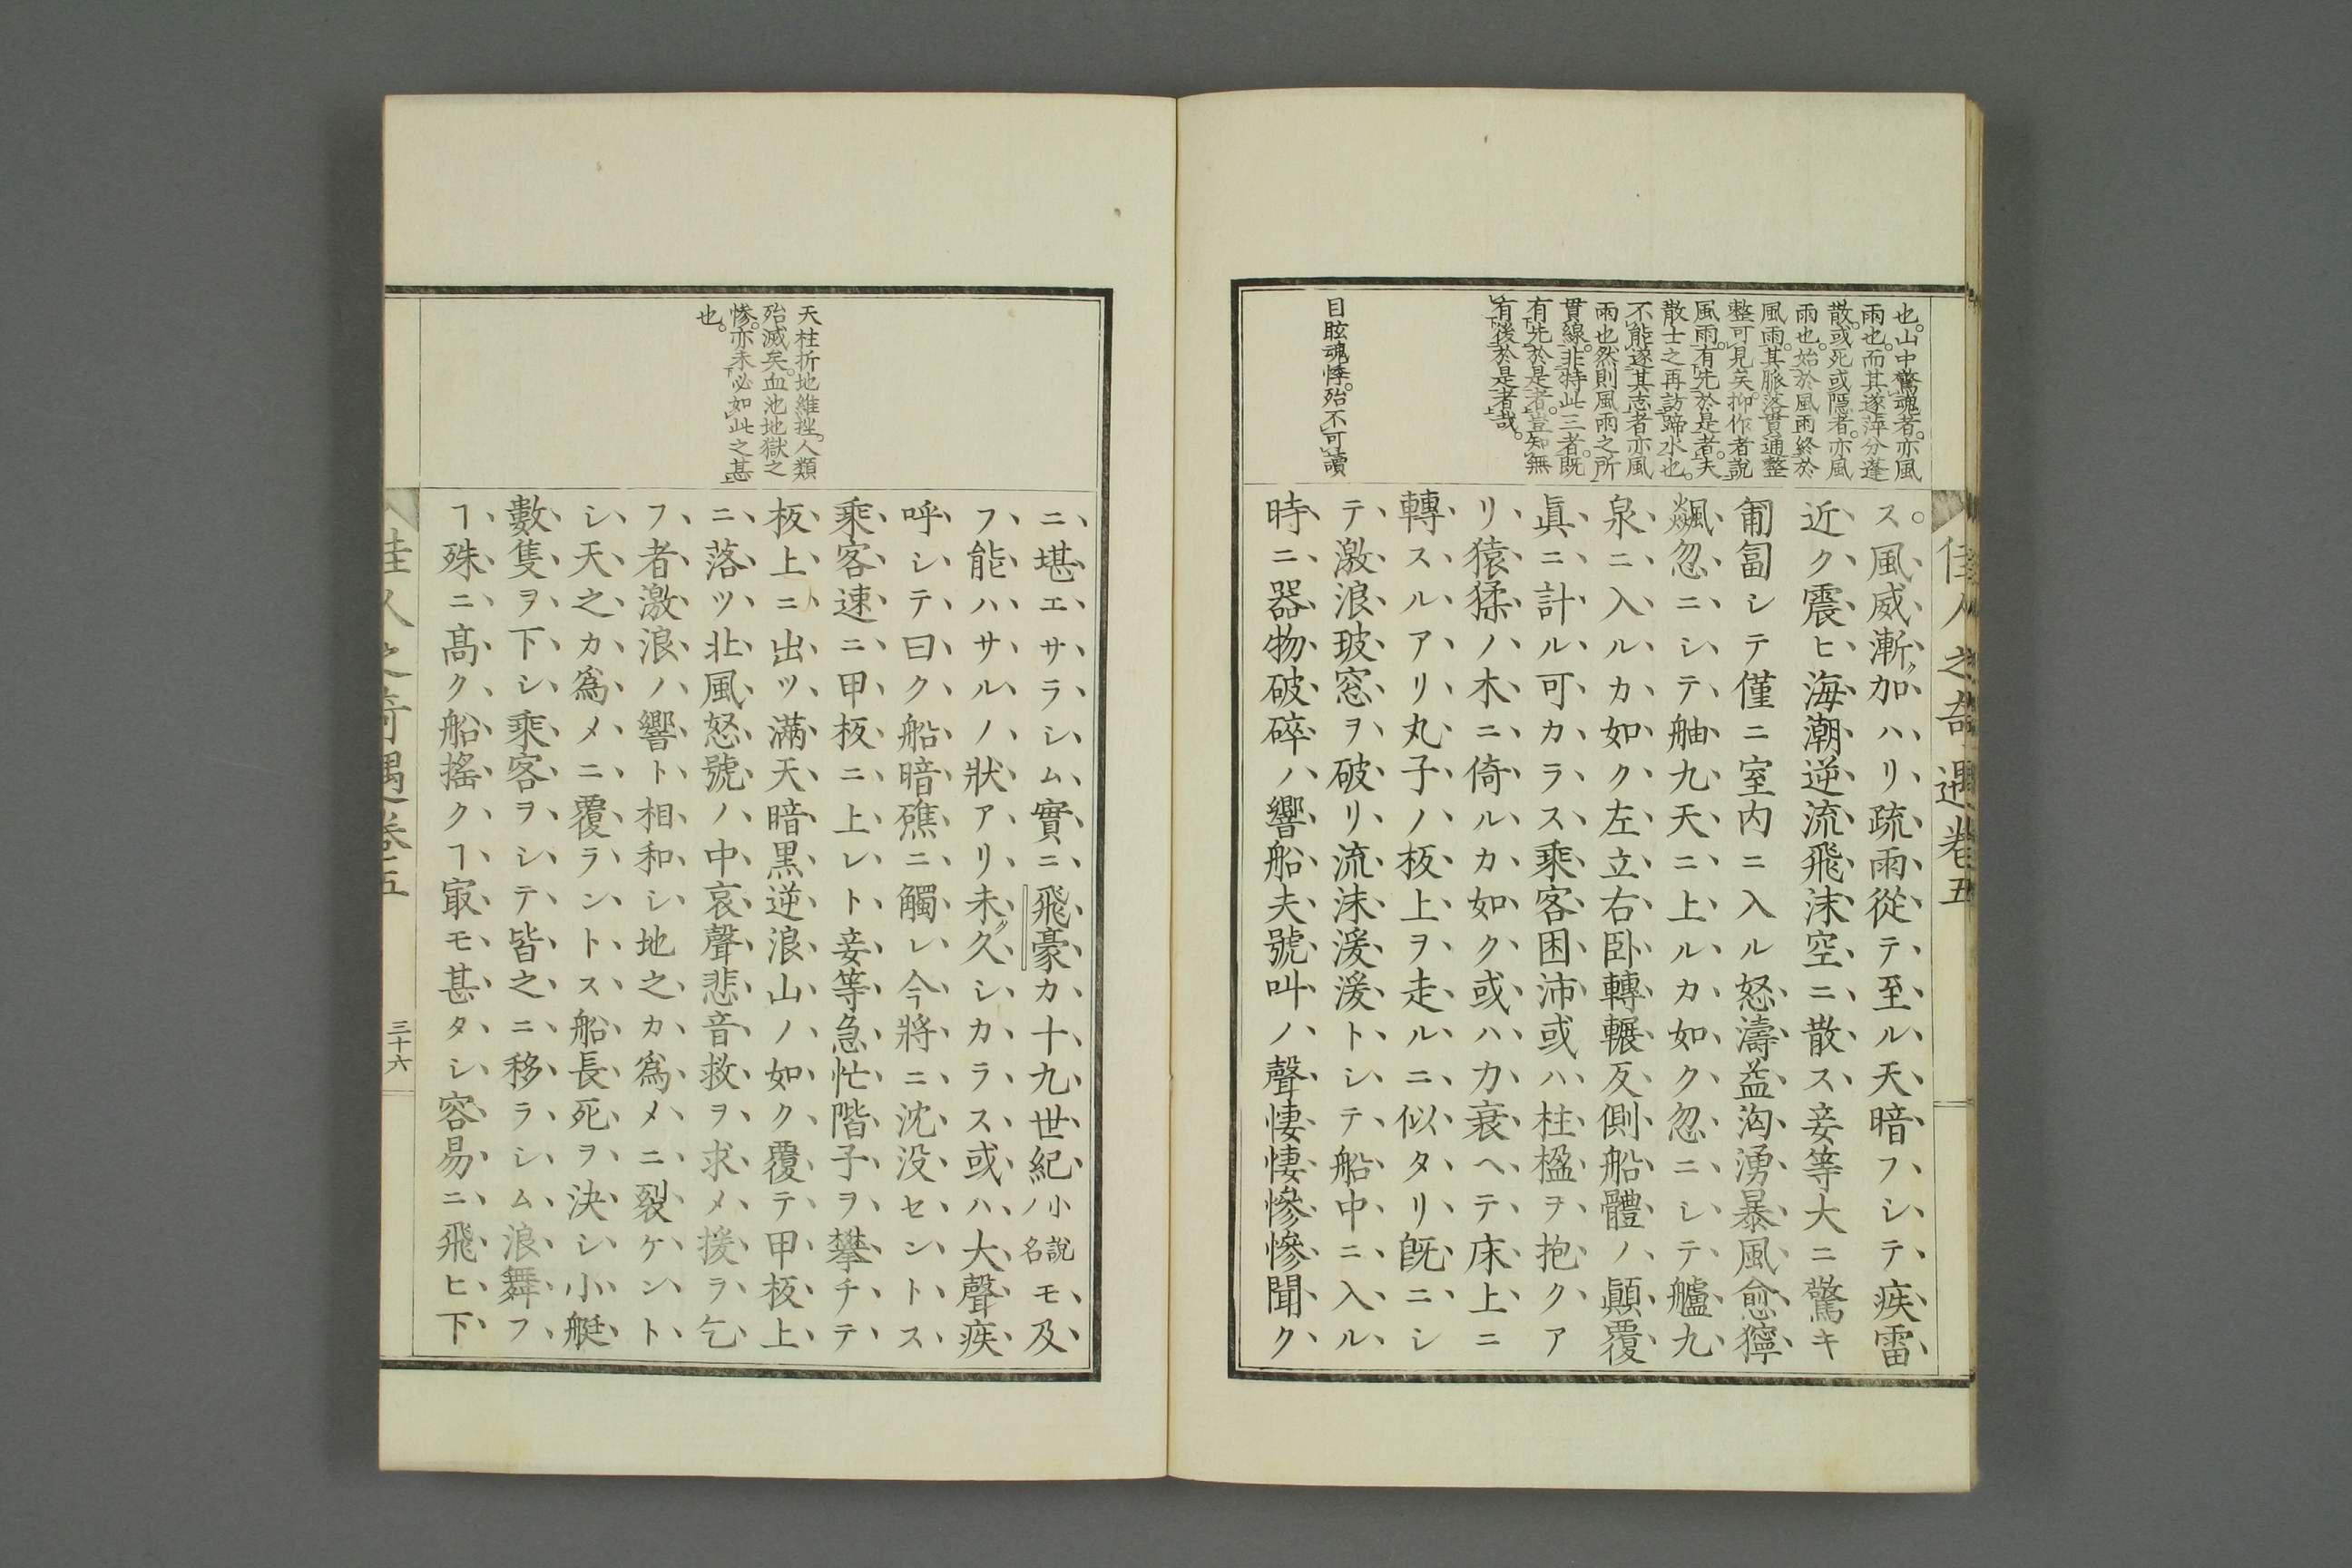 佳人之奇遇卷五
也。山中驚魂者。亦風
雨也。而其遂萍分蓬
散。或死或隱者。亦風
雨也。始於風雨終於
風雨。其脈落貫通整
整可見矣。抑作者說
風雨。有先於是者。夫
散士之再訪蹄水也。
不能遂其志者亦風
雨也然則風雨之所
貫線。非特此三者。既
有先於是者。豈知無
有後於是者哉。
目眩魂悸。殆不可讀
ス。風威漸ク加ハリ疏雨從テ至ル天暗フシテ疾雷
近ク震ヒ海潮逆流飛沫空ニ散ス妾等大ニ驚キ
匍匐シテ僅ニ室内ニ入ル怒濤益洶湧暴風愈獰
飈忽ニシテ舳九天ニ上ルカ如ク忽ニシテ艫九
泉ニ入ルカ如ク左立右卧轉輾反側船體ノ顚覆
眞ニ計ル可カラス乘客困沛或ハ柱楹ヲ抱クア
リ猿猱ノ木ニ倚ルカ如ク或ハ力衰ヘテ床上ニ
轉スルアリ丸子ノ板上ヲ走ルニ似タリ旣ニシ
テ激浪玻窓ヲ破リ流沫湲湲トシテ船中ニ入ル
時ニ器物破碎ノ響船夫號叫ノ聲悽悽慘慘聞ク
天柱折地維挫。人類
殆滅矣。血池地獄之
慘。亦未必如此之甚
也。
ニ堪エサラシム實ニ飛豪カ十九世紀小說ノ名モ及
フ能ハサルノ狀アリ未タ久シカラス或ハ大聲疾
呼シテ曰ク船暗礁ニ觸レ今將ニ沈没セントス
乘客速ニ甲板ニ上レト妾等急忙階子ヲ攀チテ
板上ニ出ツ滿天暗黒逆浪山ノ如ク覆テ甲板上
ニ落ツ北風怒號ノ中哀聲悲音救ヲ求メ援ヲ乞
フ者激浪ノ響ト相和シ地之カ爲メニ裂ケント
シ天之カ爲メニ覆ラントス船長死ヲ決シ小艇
數隻ヲ下シ乘客ヲシテ皆之ニ移ラシム浪舞フ
ヿ殊ニ髙ク船搖クヿ㝡モ甚タシ容易ニ飛ヒ下
佳人之奇遇卷五
三十六